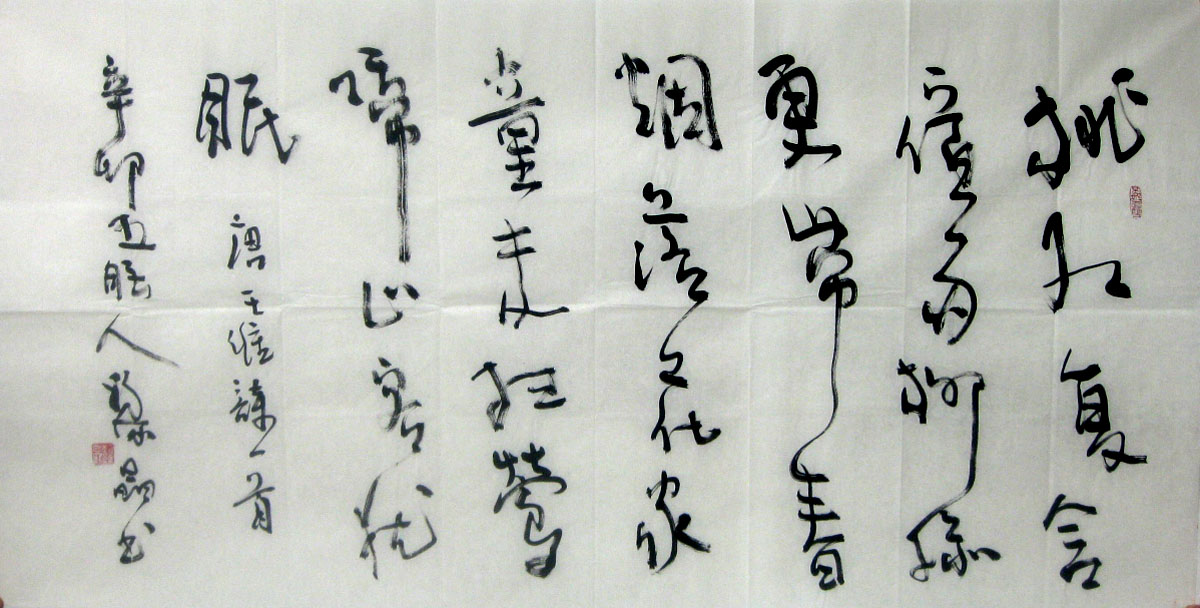 桃红复含
宿雨柳绿
更带春
烟落花家
童未扫莺
啼山客犹
眠 唐王维诗一首
辛卯 人黎晶书